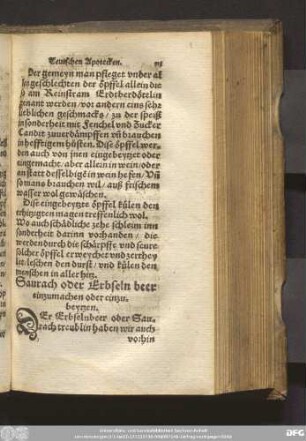 Teutschen Apotecken.
Der gemeyn man pfleget vnder al
len geschlechten der öpffel allein die
so am Reinstram Erdtberdörtlin
genant werden/ vor andern eins sehr
lieblichen geschmacks/ zu der speiß
insonderheit mit Fenchel vnd Zucker
Candit zuuerdämpffen vñ brauchen
in hefftigem hůsten. Dise öpffel wer-
den auch von jnen eingebeytzet oder
eingemacht/ aber allein in wein/ oder
an statt desselbigē in wein hefen/ Vñ
so mans brauchen wil/ auß frischem
wasser wol gewäschen.
Dise eingebeytzte öpffel külen den
erhitzigten magen treffenlich wol.
Wo auch schädliche zehe schleim inn
sonderheit darinn vorhanden/ die
werden durch die schärpffe vnd seure
solcher öpffel erweychet vnd zertheylt
sie leschen den durst/ vnd külen den
menschen in aller hitz.
Saurach oder Erbseln beer
einzumachen oder einzu-
beytzen.
Er Erbselnbeer oder Sau-
rach treublin haben wir auch
vorhin